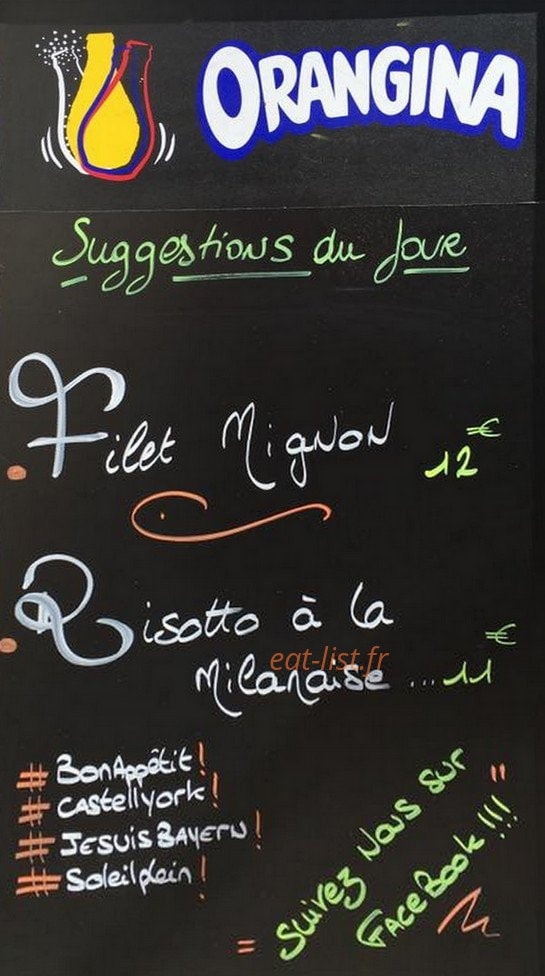 ORANGINA
Suggestions du Jour
Filet Mignon 12€
Risotto à la
Milanaise ... 11€
eat-list.fr
# BonAppétit!
# Castellyork!
# JESUISBAYERN!
# Soleilplein!
Suivez Nous sur
FaceBook!!!